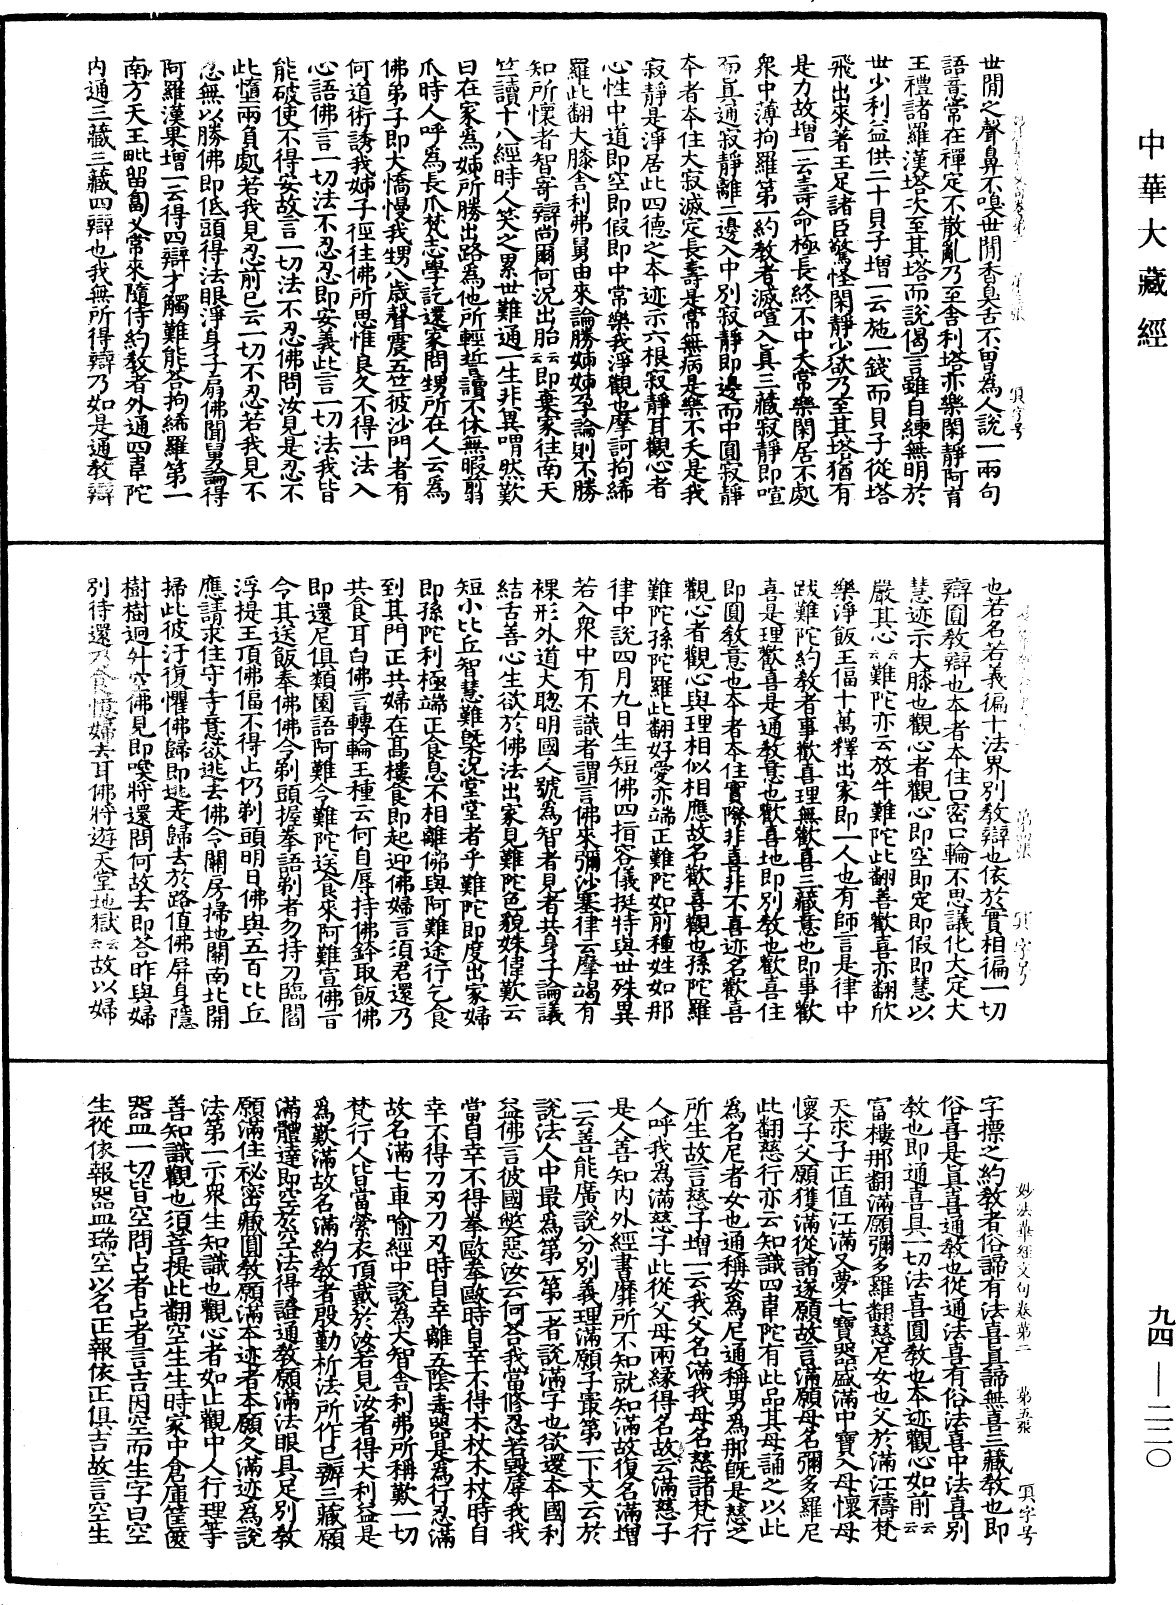 中華大藏經
世間之聲鼻不嗅世間香臭舌不曾為人說一兩句
語意常在禪定不散亂乃至舍利塔亦樂閑靜阿育
王禮諸羅漢塔次至其塔而說偈言雖自練無明於
世少利益供二十貝子增一云施一錢而貝子從塔
飛出來著王足諸臣驚怪閑靜少欲乃至其塔猶有
是力故增一云壽命極長終不中夭常樂閑居不處
眾中薄拘羅第一約教者滅喧入真三藏寂靜即喧
而真通寂靜離二邊入中別寂靜即邊而中圓寂靜
本者本住大寂滅定長壽是常無病是樂不夭是我
寂靜是淨居此四德之本迹示六根寂靜耳觀心者
心性中道即空即假即中常樂我淨觀也摩訶拘絺
羅此翻大膝舍利弗舅由來論勝姊姊孕論則不勝
知所懷者智寄辯尚爾何況出胎云云即棄家往南天
竺讀十八經時人笑之累世難通一生非冀喟然歎
曰在家為姊所勝出路為他所輕誓讀不休無暇剪
爪時人呼為長爪梵志學訖還家問甥所在人云為
佛弟子即大憍慢我甥八歲聲震五竺彼沙門者有
何道術誘我姊子徑往佛所思惟良久不得一法入
心語佛言一切法不忍忍即安義此言一切法我皆
能破使不得安故言一切法不忍佛問汝見是忍不
此墮兩負處若我見忍前已云一切不忍若我見不
忍無以勝佛即低頭得法眼淨身子扇佛聞舅論得
阿羅漢果增一云得四辯才觸難能答拘絺羅第一
南方天王毗留匐叉常來隨侍約教者外通四韋陀
內通三藏三藏四辯也我無所得辯乃如是通教辯
也若名若義徧十法界別教辯也依於實相徧一切
辯圓教辯也本者本住口密口輪不思議化大定大
慧迹示大膝也觀心者觀心即空即定即假即慧以
嚴其心云云難陀亦云放牛難陀此翻善歡喜亦翻欣
樂淨飯王偪十萬釋出家即一人也有師言是律中
跋難陀約教者事歡喜理無歡喜三藏意也即事歡
喜是理歡喜是通教意也歡喜地即別教也歡喜住
即圓教意也本者本住實際非喜非不喜迹名歡喜
觀心者觀心與理相似相應故名歡喜觀也孫陀羅
難陀孫陀羅此翻好愛亦端正難陀如前種姓如那
律中說四月九日生短佛四指容儀挺特與世殊異
若入眾中有不識者謂言佛來彌沙塞律云摩竭有
裸形外道大聰明國人號為智者見者共身子論議
結舌善心生欲於佛法出家見難陀色貌姝偉歎云
短小比丘智慧難槩況堂堂者乎難陀即度出家婦
即孫陀利極端正食息不相離佛與阿難途行乞食
到其門正共婦在高樓食即起迎佛婦言須君還乃
共食耳白佛言轉輪王種云何自辱持佛鉢取飯佛
即還尼俱類園語阿難令難陀送食來阿難宣佛旨
令其送飯奉佛佛令剃頭握拳語剃者勿持刀臨閻
浮提王頂佛偪不得止仍剃頭明日佛與五百比丘
應請求住守寺意欲逃去佛令關房掃地關南北開
掃此彼汙復懼佛歸即逃走歸去於路值佛屏身隱
樹樹迴升空佛見即喚將還問何故去即答昨與婦
別待還乃食憶婦去耳佛將遊天堂地獄云云故以婦
字摽之約教者俗諦有法喜真諦無喜三藏教也即
俗喜是真喜通教也從通法喜有俗法喜中法喜別
教也即通喜具一切法喜圓教也本迹觀心如前云云
富樓那翻滿願彌多羅翻慈尼女也父於滿江禱梵
天求子正值江滿又夢七寶器盛滿中寶入母懷母
懷子父願獲滿從諸遂願故言滿願母名彌多羅尼
此翻慈行亦云知識四韋陀有此品其母誦之以此
為名尼者女也通稱女為尼通稱男為那既是慈之
所生故言慈子增一云我父名滿我母名慈諸梵行
人呼我為滿慈子此從父母兩緣得名故云滿慈子
是人善知內外經書靡所不知就知滿故復名滿增
一云善能廣說分別義理滿願子最第一下文云於
說法人中最為第一第一者說滿字也欲還本國利
益佛言彼國弊惡汝云何答我當修忍若毀辱我我
當自幸不得拳歐拳歐時自幸不得木杖木杖時自
幸不得刀刃刀刃時自幸離五陰毒器是為行忍滿
故名滿七車喻經中說為大智舍利弗所稱歎一切
梵行人皆當縈衣頂戴於汝若見汝者得大利益是
為歎滿故名滿約教者殷勤析法所作已辦三藏願
滿體達即空於空法得證通教願滿法眼具足別教
願滿住祕密藏圓教願滿本迹者本願久滿迹為說
法第一示眾生知識也觀心者如止觀中人行理等
善知識觀也須菩提此翻空生生時家中倉庫筐篋
器皿一切皆空問占者占者言吉因空而生字曰空
生從依報器皿瑞空以名正報依正俱吉故言空生
妙法華經文句卷第二　第五張　頂字号
九四—二二〇